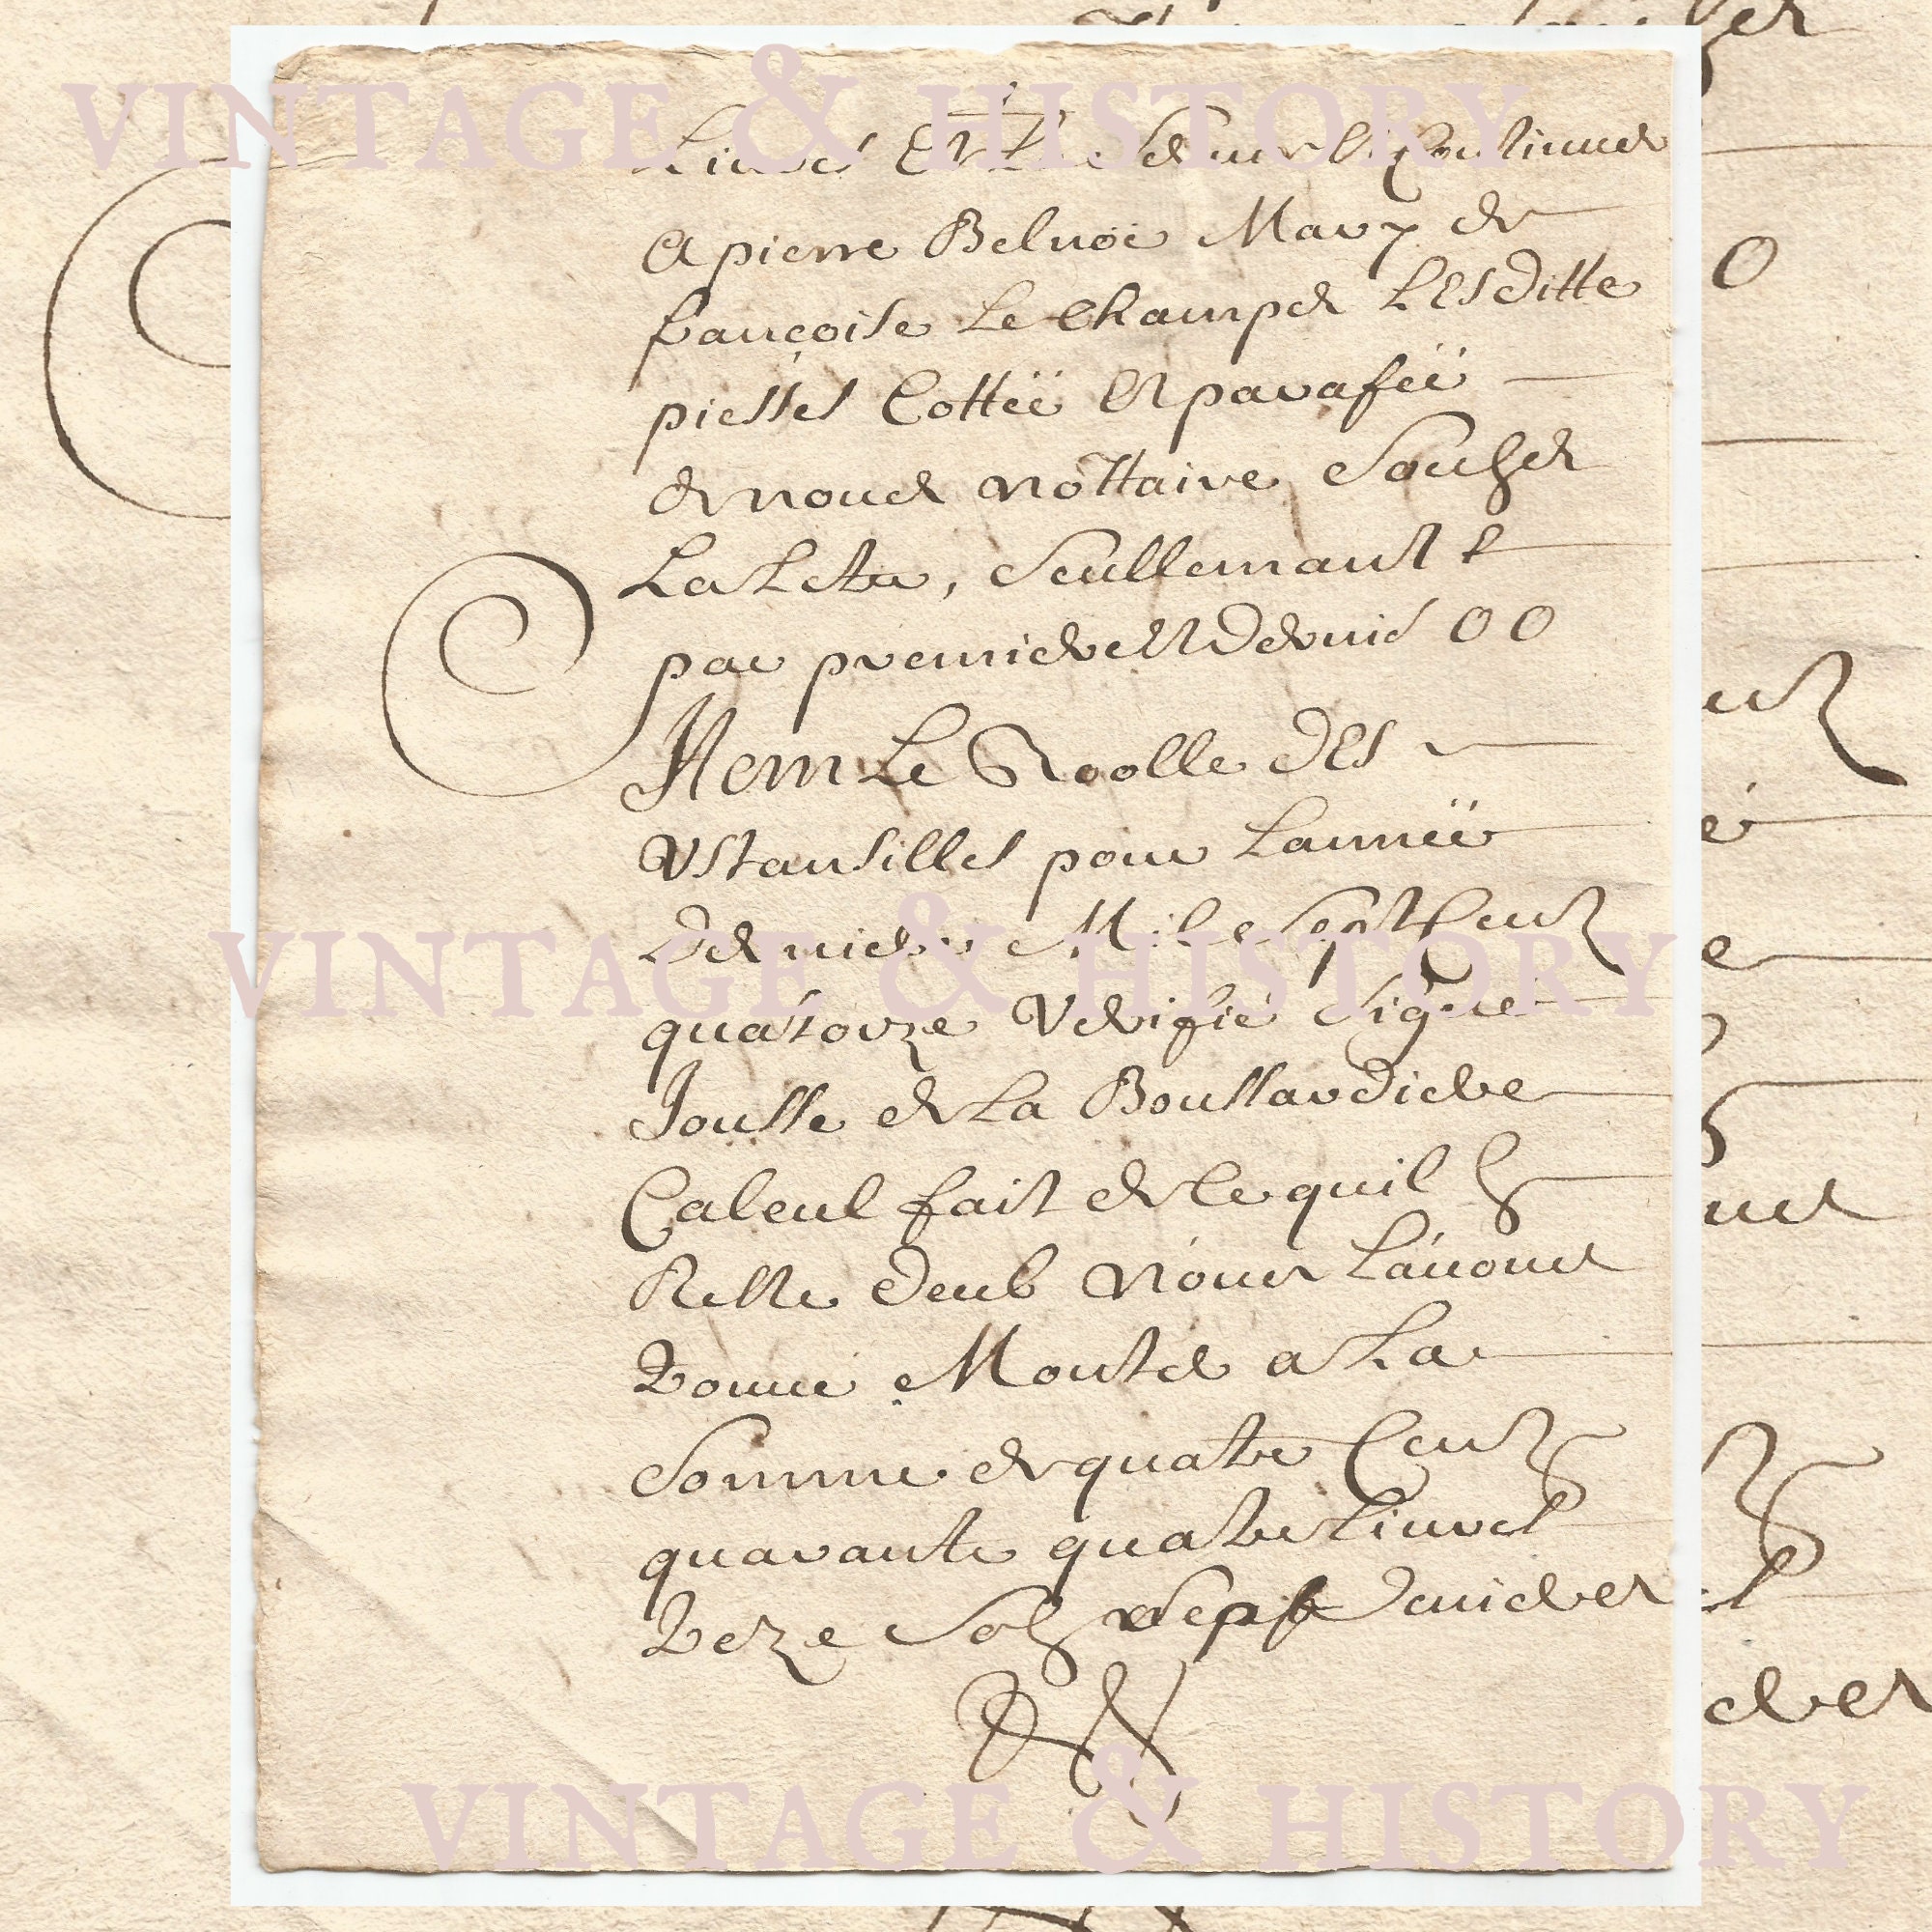 VINTAGE & HISTORY
Liures Et
A pierre Beluoë Mary de
francoise Le Champes Lesditte
piesses Cottëë Et parafëë
de noues nottaire soubz
La Letre, seullemant
par premiere Et Dernie OO
Item Le Roolle Des
Vstansilles pour Lannëë
Derniere Mil sept Cent
VINTAGE & HISTORY
quatorze Verifié signé
Jousse de La Boussardiere
Calcul fait de Ce quil
Reste deub Nous Lauons
trouué Monter a La
Somme de quatre Centz
quarante quatre Liures
treze solz sept Deniers
VINTAGE & HISTORY